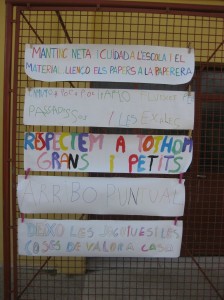 MANTINC NETA I CUIDADA L'ESCOLA I EL
MATERIAL. LLENÇO ELS PAPERS A LA PAPERERA
I LES
RESPECTEM A TOTHOM
GRANS I PETITS
ARRIBO PUNTUAL
DEIXO LES JOGUINES I LES
COSES DE VALOR A CASA